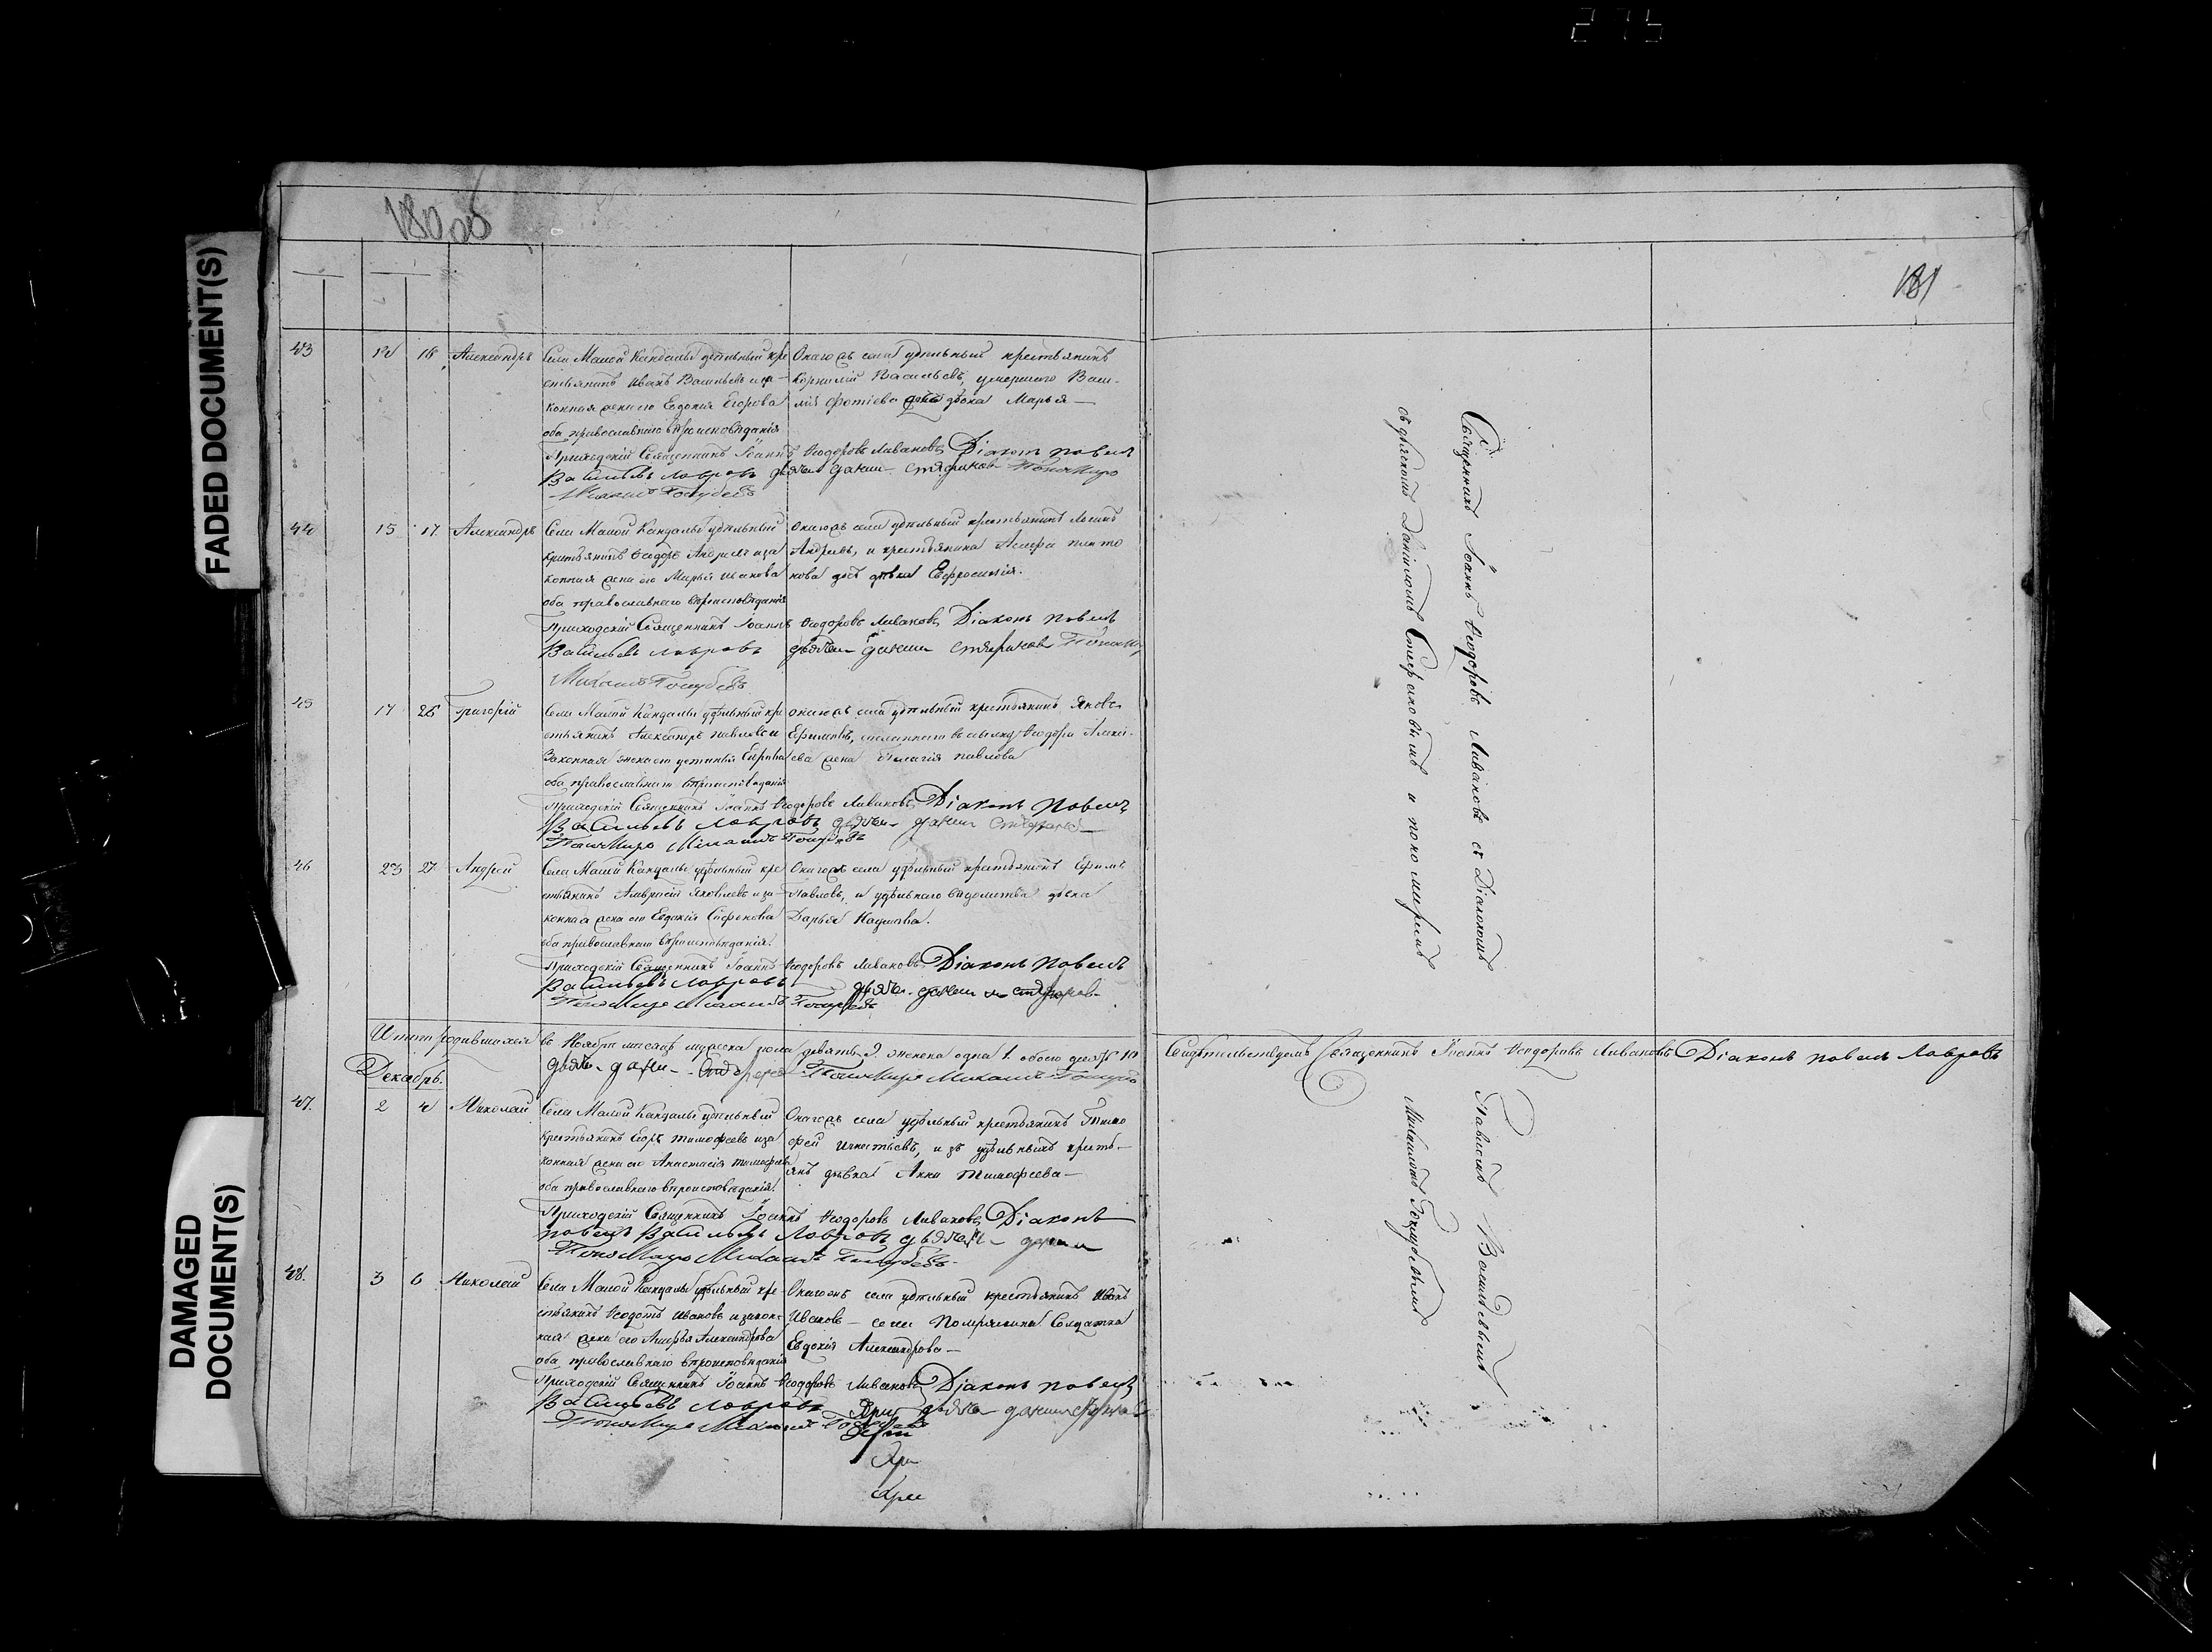 275
FADED DOCUMENT(S)
DAMAGED DOCUMENT(S)
180 об
181
43 14 18 Александръ Села Малой Кандалы удѣльный кре
стьянинъ Иванъ Васильевъ и за
конная жена его Евдокия Егорова
оба православнаго вѣроисповѣданія
Онагожъ села удѣльный крестьянинъ
Корнилій Васильевъ, умершаго Васи
лія Фотіева дочь дѣвка Марья
Приходскій Священникъ Іоаннъ Ѳеодоровъ Ливановъ Діаконъ Павелъ
Васильевъ Лавровъ дьячекъ Данiилъ Стефановъ Пономарь
Михаилъ Голубевъ
44 15 17 Александръ Села Малой Кандалы удѣльный
крестьянинъ Ѳеодоръ Андреевъ и за
конная жена его Марья Исакова
оба православнаго вѣроисповѣданія
Онагожъ села удѣльный крестьянинъ
Андреевъ, и крестьянина
дочь дѣвка Евфросинія.
Приходскій Священникъ Іоаннъ Ѳеодоровъ Ливановъ Діаконъ Павелъ
Васильевъ Лавровъ дьячекъ Данiилъ Стефановъ Пономарь
Михаилъ Голубевъ
45 17 26 Григорій Села Малой Кандалы удѣльный кре
стьянинъ Александръ Павловъ и
Законная жена его Устинья Ефимова
оба православнаго вѣроисповѣданія
онагожъ села удѣльный крестьянинъ Яковъ
Ефимовъ, сосланнаго въ ссылку Ѳеодора Алексѣ
ева жена Пелагія Павлова
Приходскій Священникъ Іоаннъ Ѳеодоровъ Ливановъ Діаконъ Павелъ
Васильевъ Лавровъ дьячекъ Данiилъ Стефановъ
Пономарь Михаилъ Голубевъ
46 23 27 Андрей Села Малой Кандалы удѣльный кре
стьянинъ Яковлевъ и за
конная жена его Евдокія
оба православнаго вѣроисповѣданія.
Онагожъ села удѣльный крестьянинъ Ефимъ
Павловъ, и удѣльнаго вѣдомства дѣвка
Дарья Наумова.
Приходскій Священникъ Іоаннъ Ѳеодоровъ Ливановъ Діаконъ Павелъ
Васильевъ Лавровъ дьячекъ Данiилъ Стефановъ
Пономарь Михаилъ Голубевъ
Итого родившихся въ Ноябрѣ мѣсяцѣ мужеска пола девять 9. женска одна 1. обоего десять 10
дьячекъ Данiилъ Стефановъ Пономарь Михаилъ Голубевъ
Декабрь.
47. 2 4 Николай Села Малой Кандалы удѣльный
крестьянинъ Егоръ Тимофеевъ и за
конная жена его Анастасія Тимофеева
оба православнаго вѣроисповѣданія.
Онагожъ села удѣльный крестьянинъ Тимо
фей Игнатьевъ, и изъ удѣльныхъ кресть
янъ дѣвка Анна Тимофеева
Приходскій Священникъ Іоаннъ Ѳеодоровъ Ливановъ Діаконъ
Павелъ Васильевъ Лавровъ дьячекъ Данiилъ
Пономарь Михаилъ Голубевъ
48. 3 6 Николай Села Малой Кандалы удѣльный кре
стьянинъ Ѳедотъ Ивановъ и закон
ная жена его Александрова
оба православнаго вѣроисповѣданія
Онагожъ села удѣльный крестьянинъ Иванъ
Ивановъ села Помряскина Солдатка
Евдокія Александрова
Приходскій Священникъ Іоаннъ Ѳеодоровъ Ливановъ Діаконъ Павелъ
Васильевъ Лавровъ дьячекъ Данiилъ Стефановъ
Пономарь Михаилъ Голубевъ
При
При
Священникъ Іоаннъ Ѳеодоровъ Ливановъ съ Діакономъ
съ дьячкомъ Даніиломъ Стефановымъ и пономаремъ
Свидѣтельствуемъ Священникъ Іоаннъ Ѳеодоровъ Ливановъ Діаконъ Павелъ Лавровъ
Павломъ Васильевымъ
Михаиломъ Голубевымъ